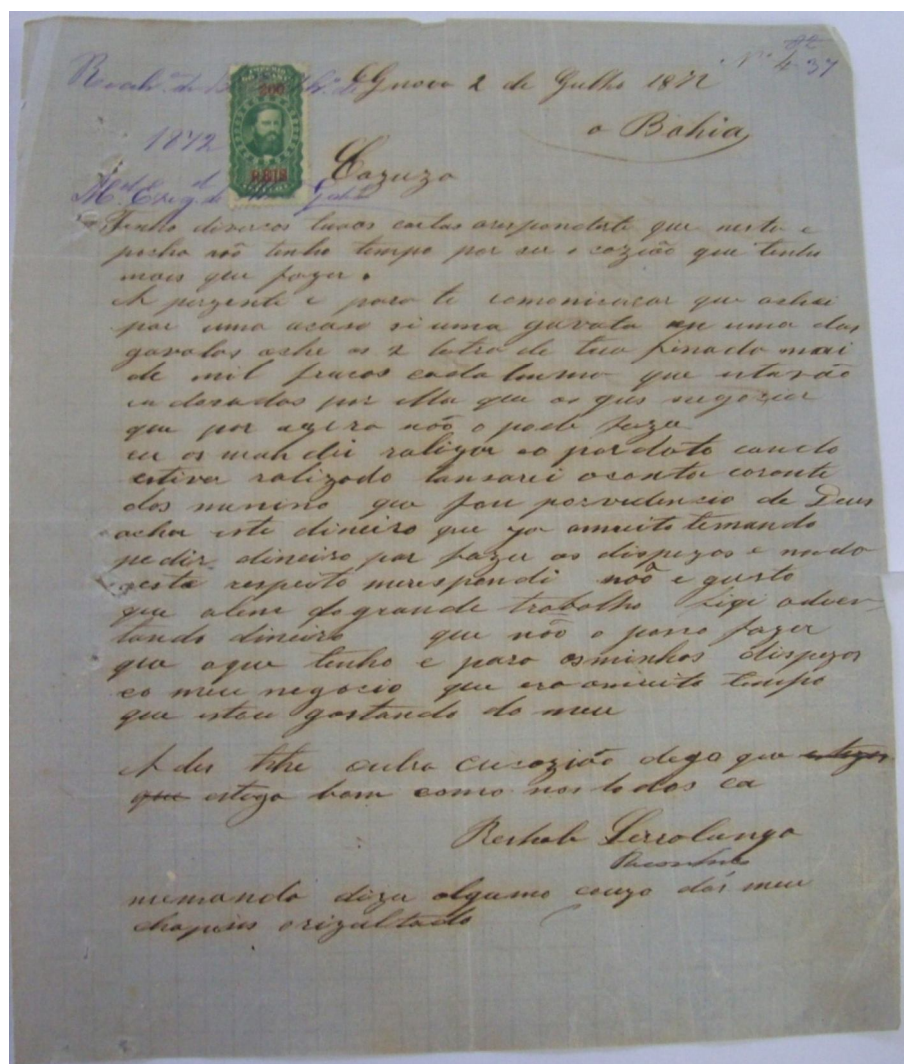 Genova 2 de Gulho 1872
a Bahia
1872
200
REIS
Cazuza
Tenho diversas tuas cartas aresponderte que nesta e
pocha nõo tenho tempo por ser o cazião que tenho
mais que fazer.
A prezente e para te comonicar que achei
por uma acaso si uma gavata en uma das
gavatas ache as 2 letra de tua finada mai
de mil francos cada huma que estavão
en dosadas por ella que as quis negoziar
que por agora nõo o pode fazer
eu os mandei ralizar eo pordoto cando
estiver ralizado lansarei aconta corente
dos menino que fou porvedencia de Deus
achar este dineiro que ja amuito temando
pedir dineiro por fazer as dispezas e nada
desta respeito merespondi nõo e gusto
que alem dogrande trabalho siga adven
tando dineiro que nõo o posso fazer
que oque tenho e para asminhas dispezas
eo meu negocio que era amuito tempo
que estou gastando do meu
A des the outra cuazião dega que
que estega bom como nos todos ca
memanda dizer alguma couza dos meu
chapeos orizultado